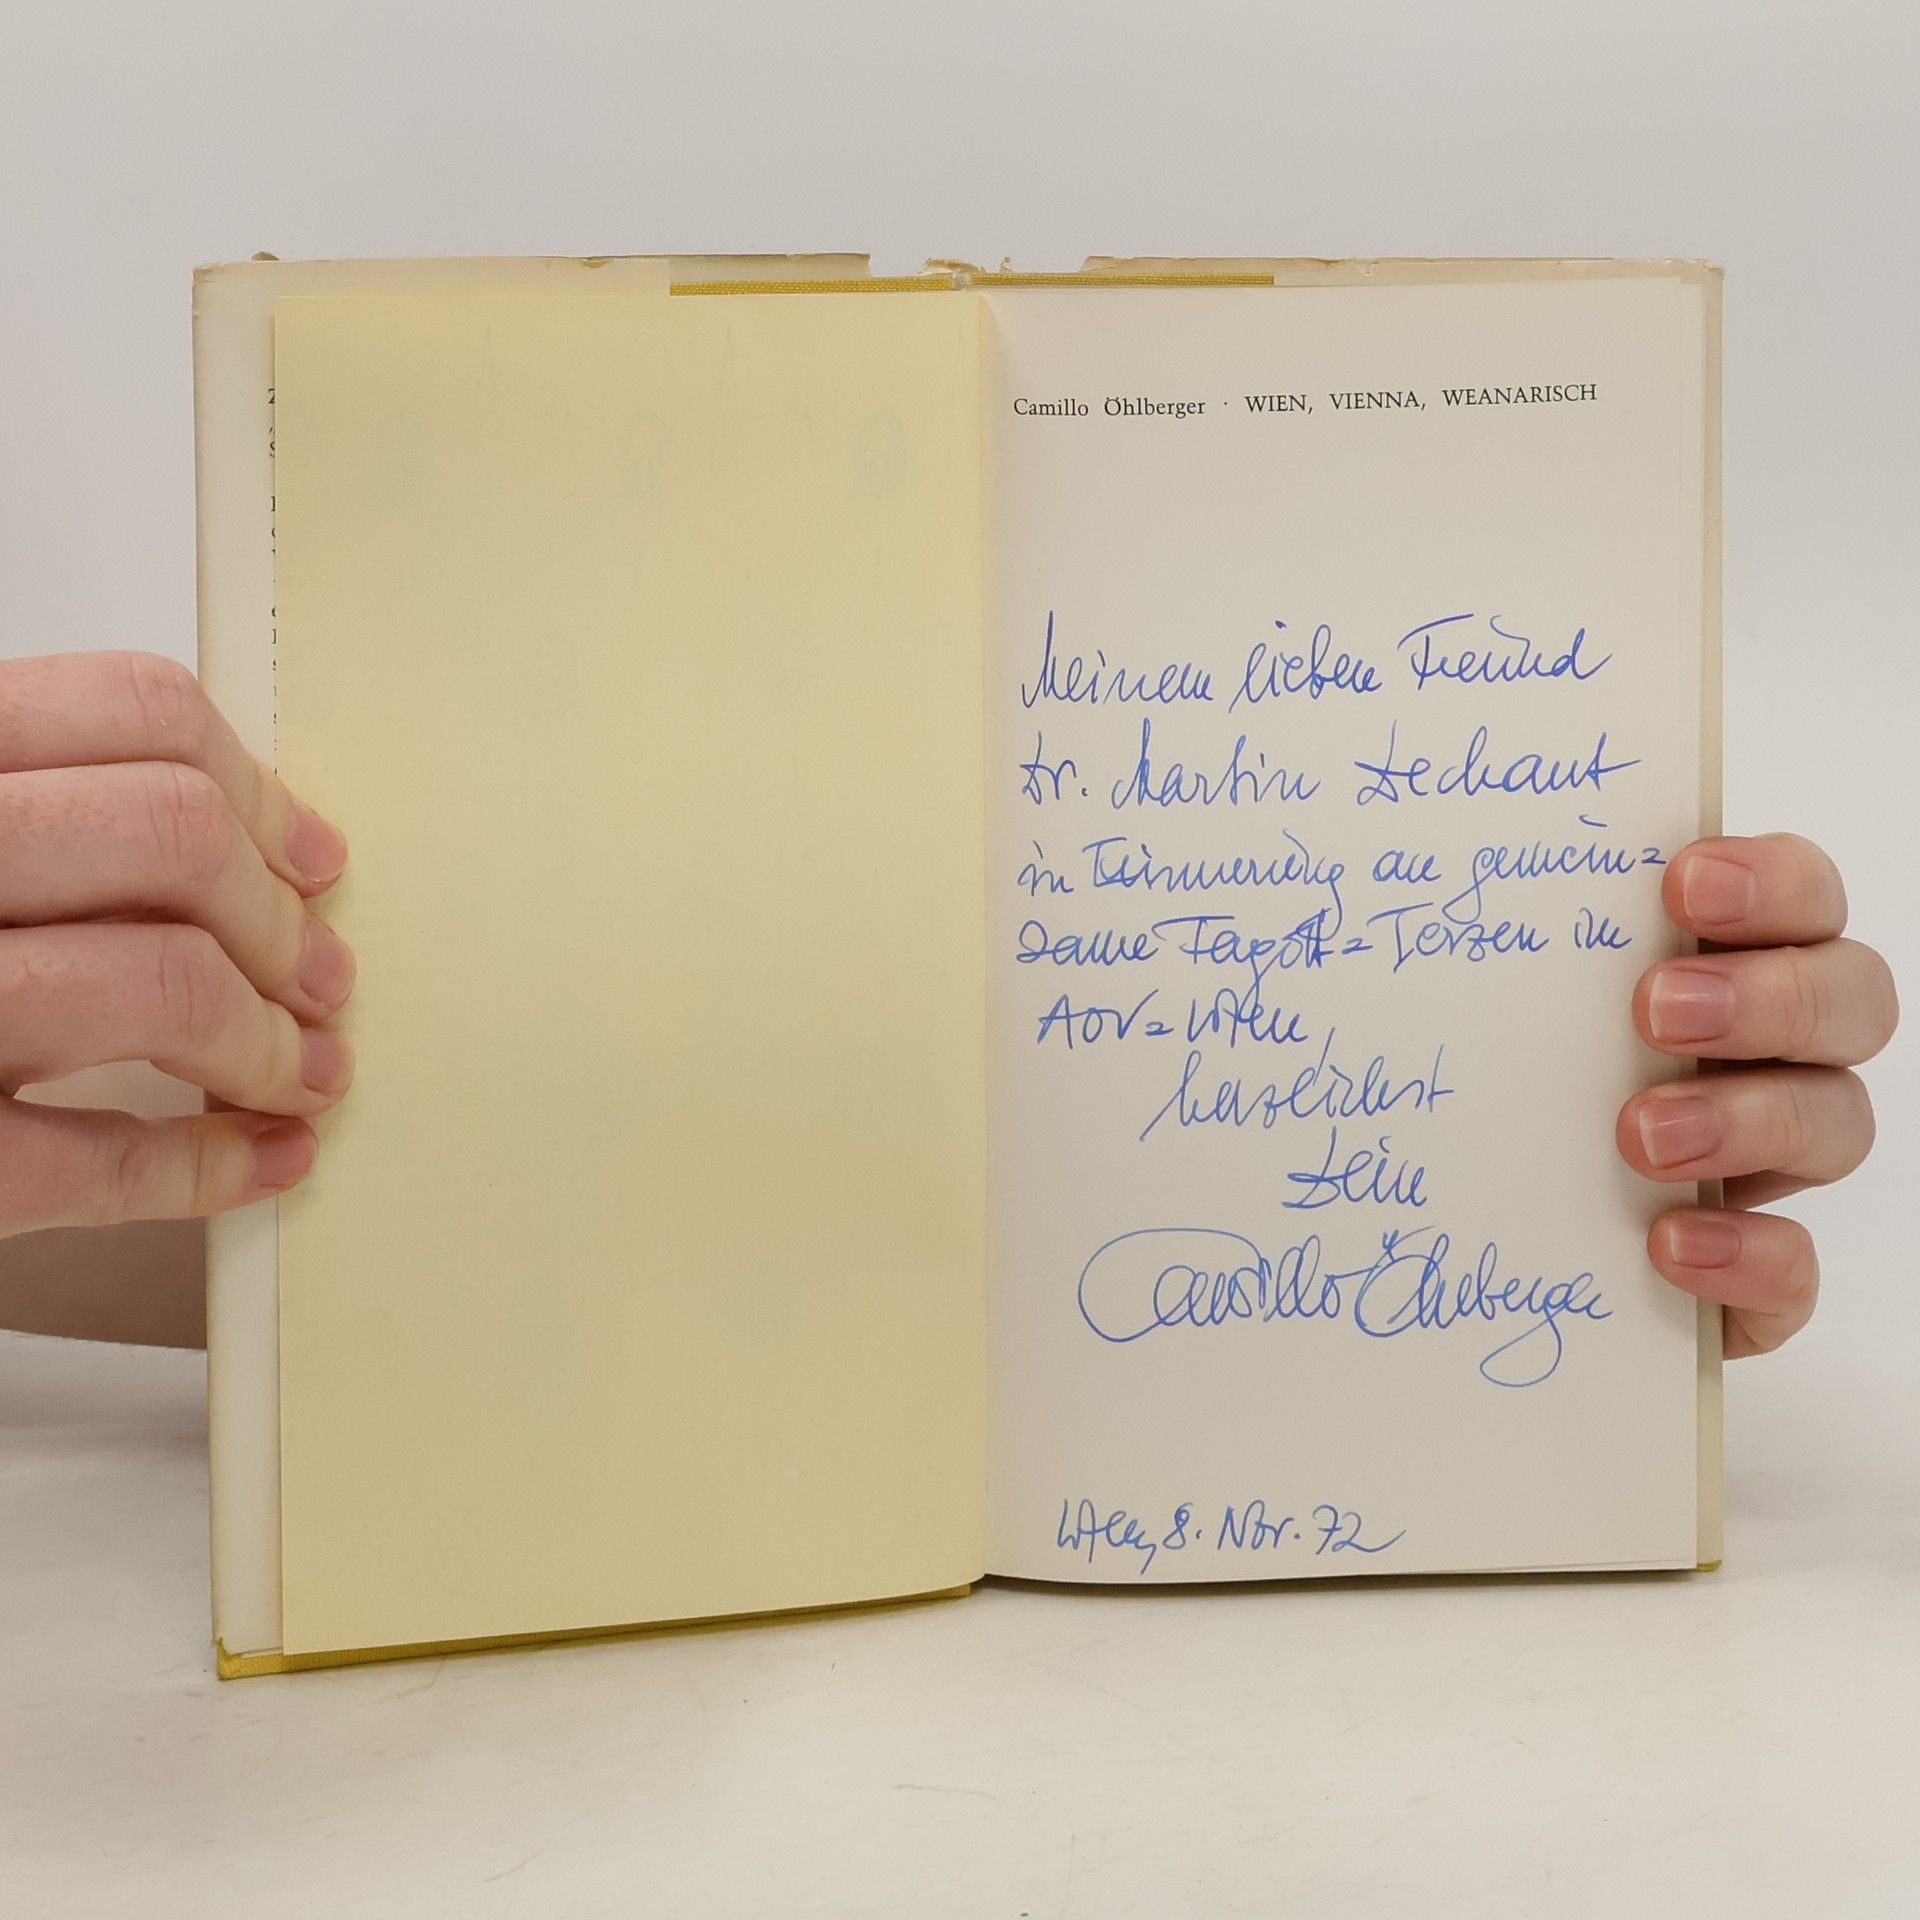 Camillo Öhlberger · WIEN, VIENNA, WEANARISCH
Meinem lieben Freund
Dr. Martin Dechant
in Erinnerung an gemein=
same Fagott=Terzen im
AOV=Wien,
herzlichst
Dein
Camillo Öhlberger
Wien, 8. Nov. 72